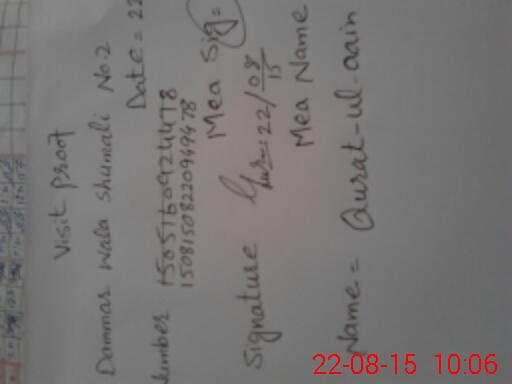 Visit proof
Dammar wala shumali No 2
Date = 22
Number 15051609924478
15081508220949478
Mea Sig =
Signature 22/08/15
Mea Name
Name = Qurat-ul-aain
22-08-15 10:06